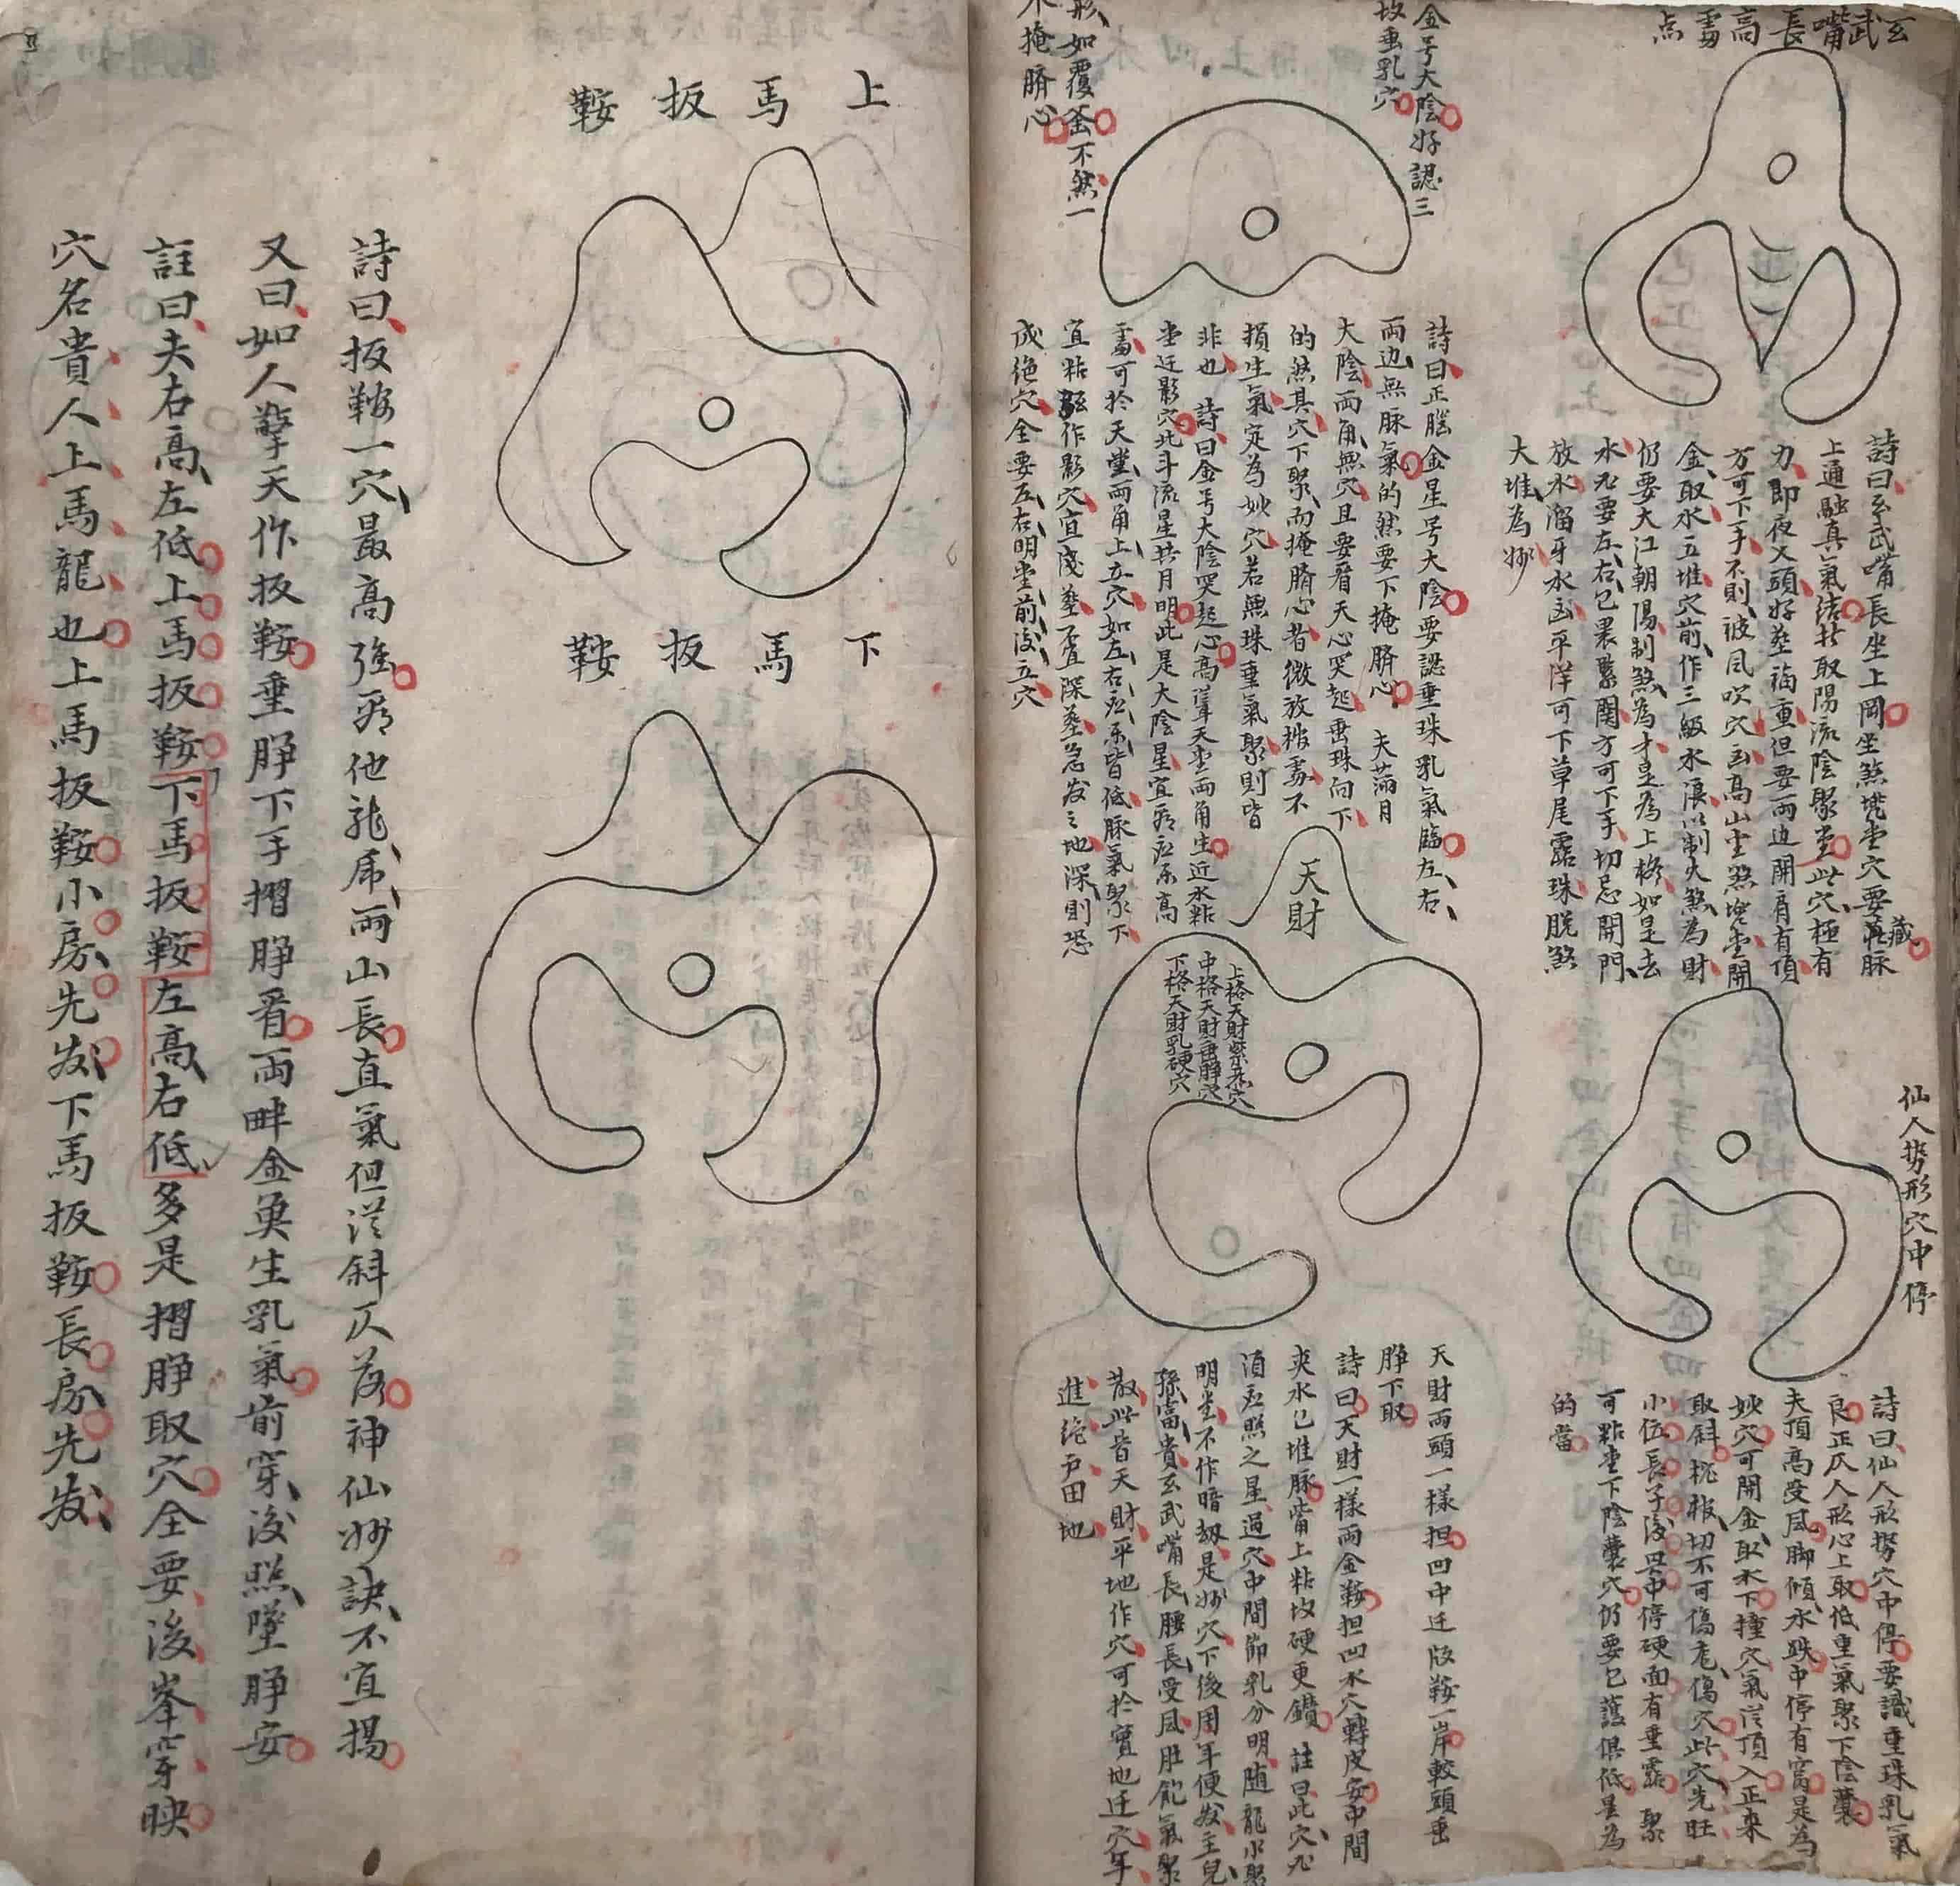 玄武嘴長高露点
詩曰玄武嘴長坐上岡坐煞堂穴要藏脉
上通融真氣结於取陽流陰聚堂此穴極有
力即夜叉頭好塟福重但要兩边開肩有頂
方可下手不則被風吹穴高山堂煞堂開
金取水五堆穴前作三級水浪以制火煞為財
仍要大江朝陽制煞為才是為上格如是去
水尤要左右包裹緊関方可下手切忌開門
放水溜牙水平洋可下草尾露珠脱煞
大堆為妙
仙人势形穴中停
詩曰仙人形势穴中停要識垂珠乳氣
良正仄人形心上取低重氣聚下陰囊
夫頂高受風脚傾水跌中停有窩是為
妙穴可開金取水下撞穴氣從頂入正來
取斜枕報切不可傷危傷穴此穴先旺
小位長子後興中停硬面有垂露聚
可點堂下陰囊穴仍要包護俱低是為
的當
金号大陰好認三
坟垂乳穴
形如覆釜不煞一
不掩臍心
詩曰正腦金星号大陰要認垂珠乳氣臨左右
兩边無脉氣的然要下掩臍心夫滿月
大陰兩角無穴且要看天心突起垂珠向下
的然其穴下聚而掩臍心者微放撞露不
損生氣定為妙穴若無珠垂氣聚則皆
非也詩曰金号大陰突起心高萆天堂兩角生近水粘
堂迁影穴此斗流星共月明此是大陰星宜看应乐高
露可於天堂兩角上立穴如左右应乐皆低脉氣聚下
宜粘作影穴宜浅塟不宜深塟急发之地深則恐
成绝穴全要左右明堂前後立穴
天財
上格天財穴
中格天財垂脬穴
下格天財乳硬穴
天財兩頭一樣担凹中迁版鞍一岸較頭垂
脬下取
詩曰天財一樣兩金鞍担凹水穴轉皮安中間
夾水包堆脉嘴上粘坟硬更鑽註曰此穴凡
須应照之星過穴中間節乳分明随龍水聚
明堂不作暗刼是妙穴下後周年便发主兒
孫富貴玄武嘴長腰長受風肚飽氣聚
散此皆天財平地作穴可於實地迁穴年
進绝戸田地
上馬扳鞍
下馬扳鞍
詩曰扳鞍一穴最高強看他龍虎兩山長直氣但從斜仄落神仙妙訣不宜揚
又曰如人擎天作扳鞍垂脬下手摺脬看兩畔金魚生乳氣前穿後照墜脬安
註曰夫右高左低上馬扳鞍下馬扳鞍左高右低多是摺脬取穴全要後峯穿映
穴名貴人上馬龍也上馬扳鞍小房先发下馬扳鞍長房先发